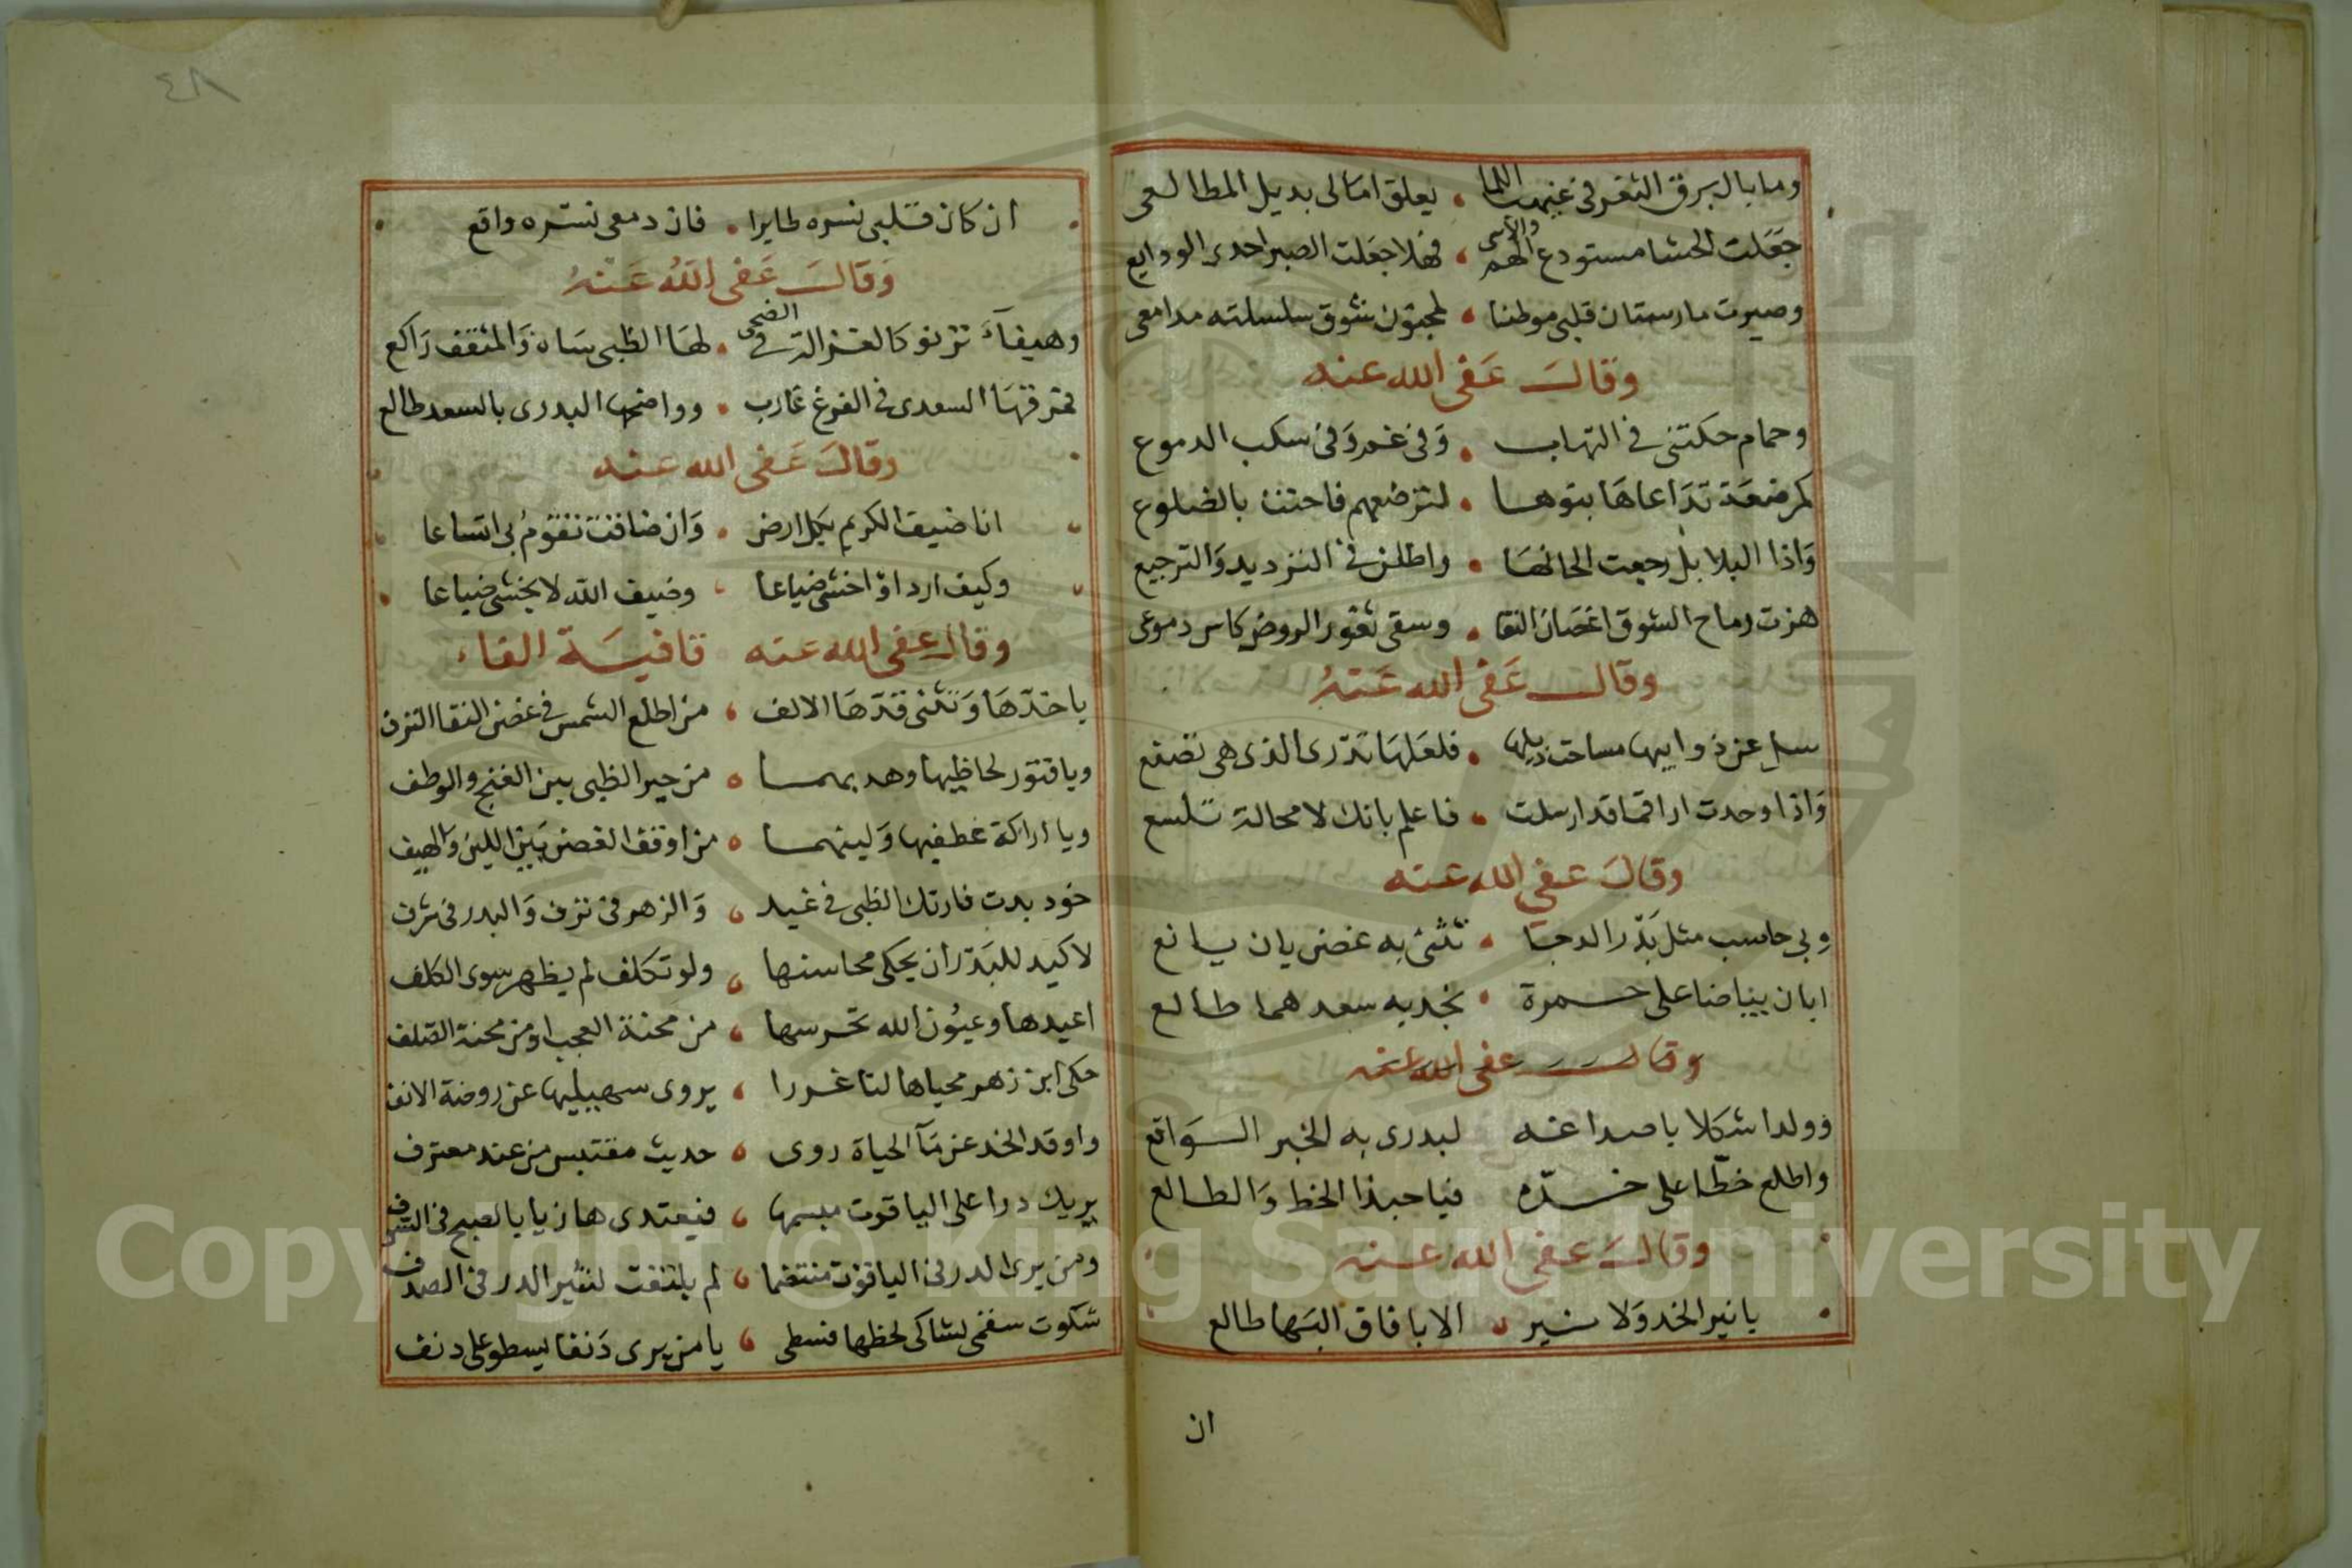 وما بال برق الثغر في غيهب اللما • يعلق امالي بديل المطالعي
جعلت الحشا مستودع الهم والاسى • فهلا جعلت الصبر احدى الودايع
وصيرت مارستان قلبي موطنا • لمجنون شوق سلسلته مدامعي
وقال عفى الله عنه
وحمام حكتني في التهاب • وفي غم وفي سكب الدموع
كمرضعة تداعاها بنوها • لترضعهم فاحتت بالضلوع
واذا البلابل رجعت الحانها • واطلن في الترديد والترجيع
هزت رماح الشوق اغصان النقا • وسقى ثغور الروض كاس دموعي
وقال عفى الله عنه
سل عن ذوايبها مساحت ذيلها • فلعلها تدرى الذى هي تصنع
واذا وجدت اراقما قد ارسلت • فاعلم بانك لا محالة تلسع
وقال عفى الله عنه
وبي حاسب مثل بدر الدجا • تثنى به غصن بان يانع
ابان بياضا على حمرة • بخد به سعدهما طالع
وقال عفى الله عنه
وولد اشكلا باصداغه لبدرى به الخبر الواقع
واطلع خطا على خده فيا حبذا الخط والطالع
وقال عفى الله عنه
يا نير الخد ولا نير • الا بافاق البها طالع
ان
٤٨
ان كان قلبي نسره طايرا • فان دمعي نسره واقع
وقال عفى الله عنه
وهيفاء ترنو كالغزالة في الضحى • لها الظبي ساه والمثقف راكع
فمرقها السعدى في الفرغ غارب • وواضحها البدرى بالسعد طالع
وقال عفى الله عنه
انا ضيف الكريم بكل ارض • وان ضاقت تقوم بي اتساعا
وكيف ارد او اخشى ضياعا • وضيف الله لا يخشى ضياعا
وقال عفى الله عنه قافية الفاء
يا خدها وتثنى قدها الالف • من اطلع الشمس في غصن النقا الترف
ويا فتور لحاظيها وهدبهما • من حير الظبي بين الغنج والوطف
ويا اراكة عطفيها ولينهما • من اوقف الغصن بين اللين والهيف
خود بدت فارتك الظبي في غيد • والزهر في ترف والبدر في شرف
لا كيد للبدر ان يحكى محاسنها • ولو تكلف لم يظهر سوى الكلف
اعيدها وعيون الله تحرسها • من محنة العجب او من محنة الصلف
حكى ابن زهر محياها لنا غررا • يروى سهيليها عن روضة الانف
واوقد الخد عن مآ الحياة روى • حديث مقتبس من عند معترف
يريك درا على الياقوت مبسمها • فيعتدى هازيا بالصبح في الشرف
ومن يرى الدر في الياقوت منتضما • لم يلتفت لنثير الدر في الصدف
شكوت سقمى لشاكى لحظها فسطى • يا من يرى دنفا يسطو على دنف